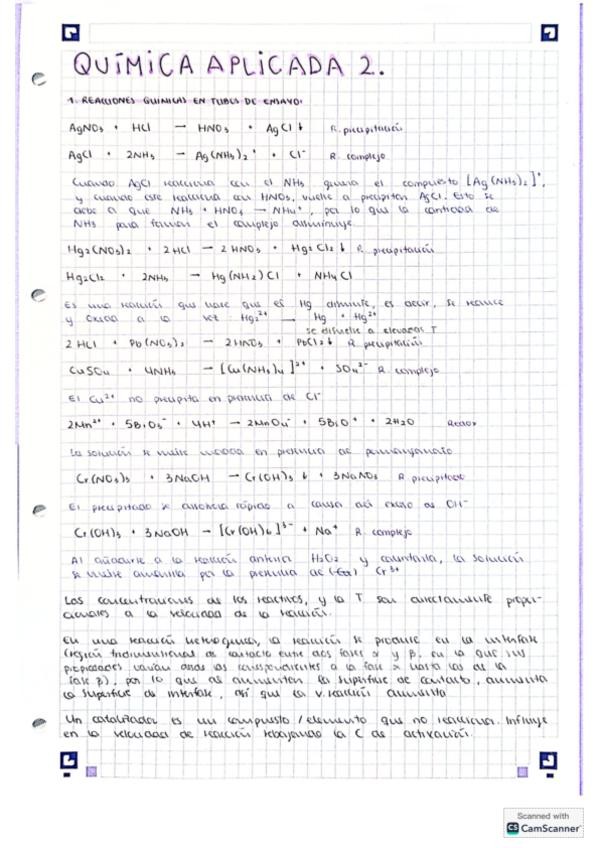 QUÍMICA APLICADA 2.
1. REACCIONES QUIMICAS EN TUBOS DE ENSAYO:
AgNO₃ + HCl → HNO₃ + AgCl↓ R. precipitación
AgCl + 2NH₃ → Ag(NH₃)₂⁺ + Cl⁻ R. complejo
Cuando AgCl reacciona con el NH₃ genera el compuesto [Ag(NH₃)₂]⁺,
y cuando este reacciona con HNO₃, vuelve a precipitar AgCl. Esto se
debe a que NH₃ + HNO₃ → NH₄⁺, por lo que la cantidad de
NH₃ para formar el complejo disminuye.
Hg₂(NO₃)₂ + 2HCl → 2HNO₃ + Hg₂Cl₂↓ R. precipitación
Hg₂Cl₂ + 2NH₃ → Hg(NH₂)Cl + NH₄Cl
Es una reacción que hace que el Hg dismute, es decir, se reduce
y oxida a la vez: Hg₂²⁺ → Hg + Hg²⁺
se disuelve a elevadas T
2HCl + Pb(NO₃)₂ → 2HNO₃ + PbCl₂↓ R. precipitación
CuSO₄ + 4NH₃ → [Cu(NH₃)₄]²⁺ + SO₄²⁻ R. complejo
El Cu²⁺ no precipita en presencia de Cl⁻
2Mn²⁺ + 5BiO₃⁻ + 4H⁺ → 2MnO₄⁻ + 5BiO⁺ + 2H₂O Redox
La solución se vuelve morada en presencia de permanganato
Cr(NO₃)₃ + 3NaOH → Cr(OH)₃↓ + 3NaNO₃ R. precipitado
El precipitado se disocia rápido a causa del exceso de OH⁻
Cr(OH)₃ + 3NaOH → [Cr(OH)₆]³⁻ + Na⁺ R. complejo
Al añadirle a la reacción anterior H₂O₂ y calentarla, la solución
se vuelve amarilla por la presencia de Cr³⁺
Las concentraciones de los reactivos, y la T son directamente propor-
cionales a la velocidad de la reacción.
En una reacción heterogénea, la reacción se produce en la interfase
(región tridimensional de contacto entre dos fases α y β, en la que sus
propiedades varían desde las correspondientes a la fase α hasta las de la
fase β), por lo que al aumentar la superficie de contacto, aumenta
la superficie de interfase, así que la v. reacción aumenta
Un catalizador es un compuesto / elemento que no reacciona. Influye
en la velocidad de reacción rebajando la E de activación.
Scanned with
CS CamScanner